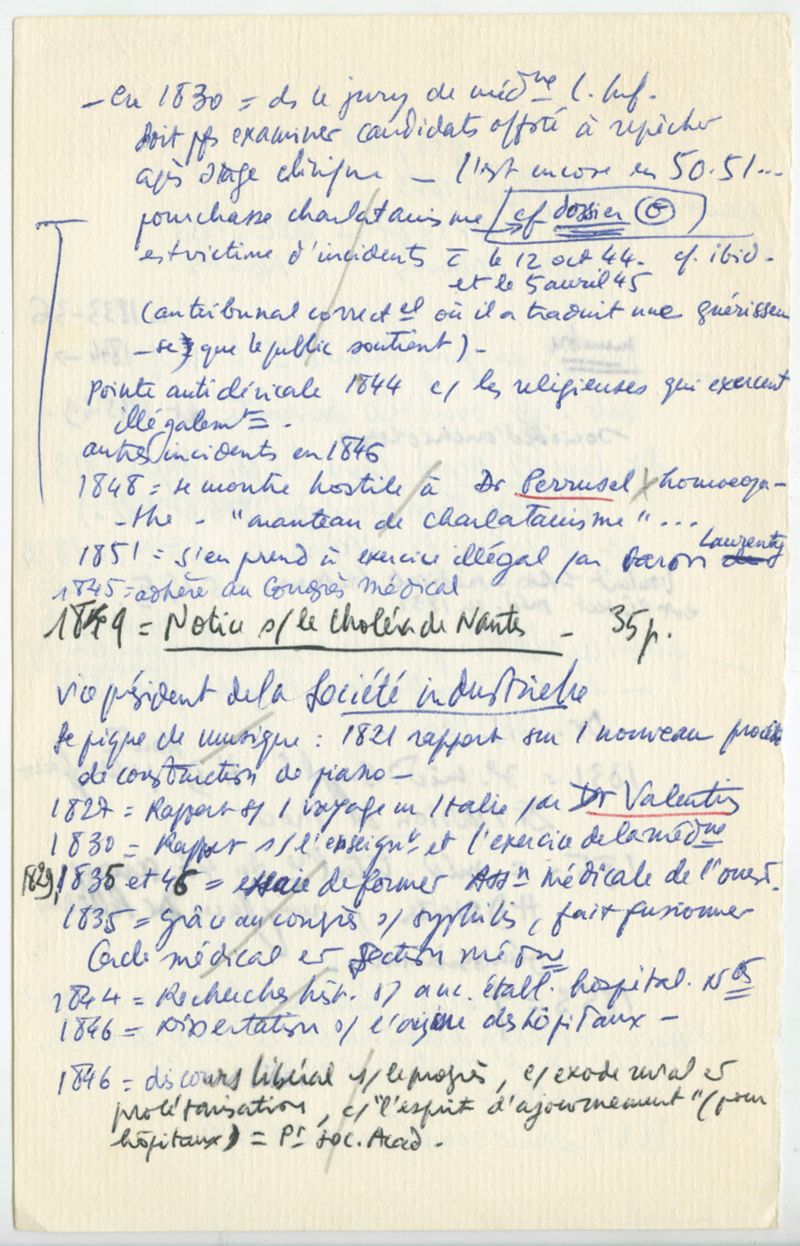 – en 1830 = ds le jury de méd^ne L. Inf.
doit pfs examiner candidats offté à repêcher
après stage clinique – l'est encore en 50.51...
pourchasse charlatanisme → cf dossier
est victime d'incidents c̄ le 12 oct 44. cf. ibid.
et le 5 avril 45
(au tribunal correct^el où il a traduit une guérisseu
-se) que le public soutient) –
Pointe anticléricale 1844 c/ les religieuses qui exercent
illégalem^t .
autres incidents en 1846
1848 = se montre hostile à Dr Perrussel homoeopa-
-the - "manteau de charlatanisme" ...
1851 = s'en prend à exercice illégal par baron Laurenty
1845 = adhère au Congrès médical
1849 = Notice s/ le choléra de Nantes – 35 p.
Vice président de la Société industrielle
se pique de musique : 1821 rapport sur 1 nouveau procédé
de construction de piano –
1827 = Rapport s/ 1 voyage en Italie par Dr Valentin
1830 = Rapport s/ l'enseign^t et l'exercice de la méd^ne
1829, 1835 et 46 = essaie de former Ass^n médicale de l'ouest.
1835 = grâce au congrès s/ syphilis, fait fusionner
Cercle médical et Section méd^ne
1844 = Recherches hist. s/ anc. établ. hospital. N^tes
1846 = Dissertation s/ l'origine des hôpitaux –
1846 = discours libéral s/ le progrès, c/ exode rural et
prolétarisation, c/ "l'esprit d'ajournement" (pour
hôpitaux) = P^r Soc. Acad.